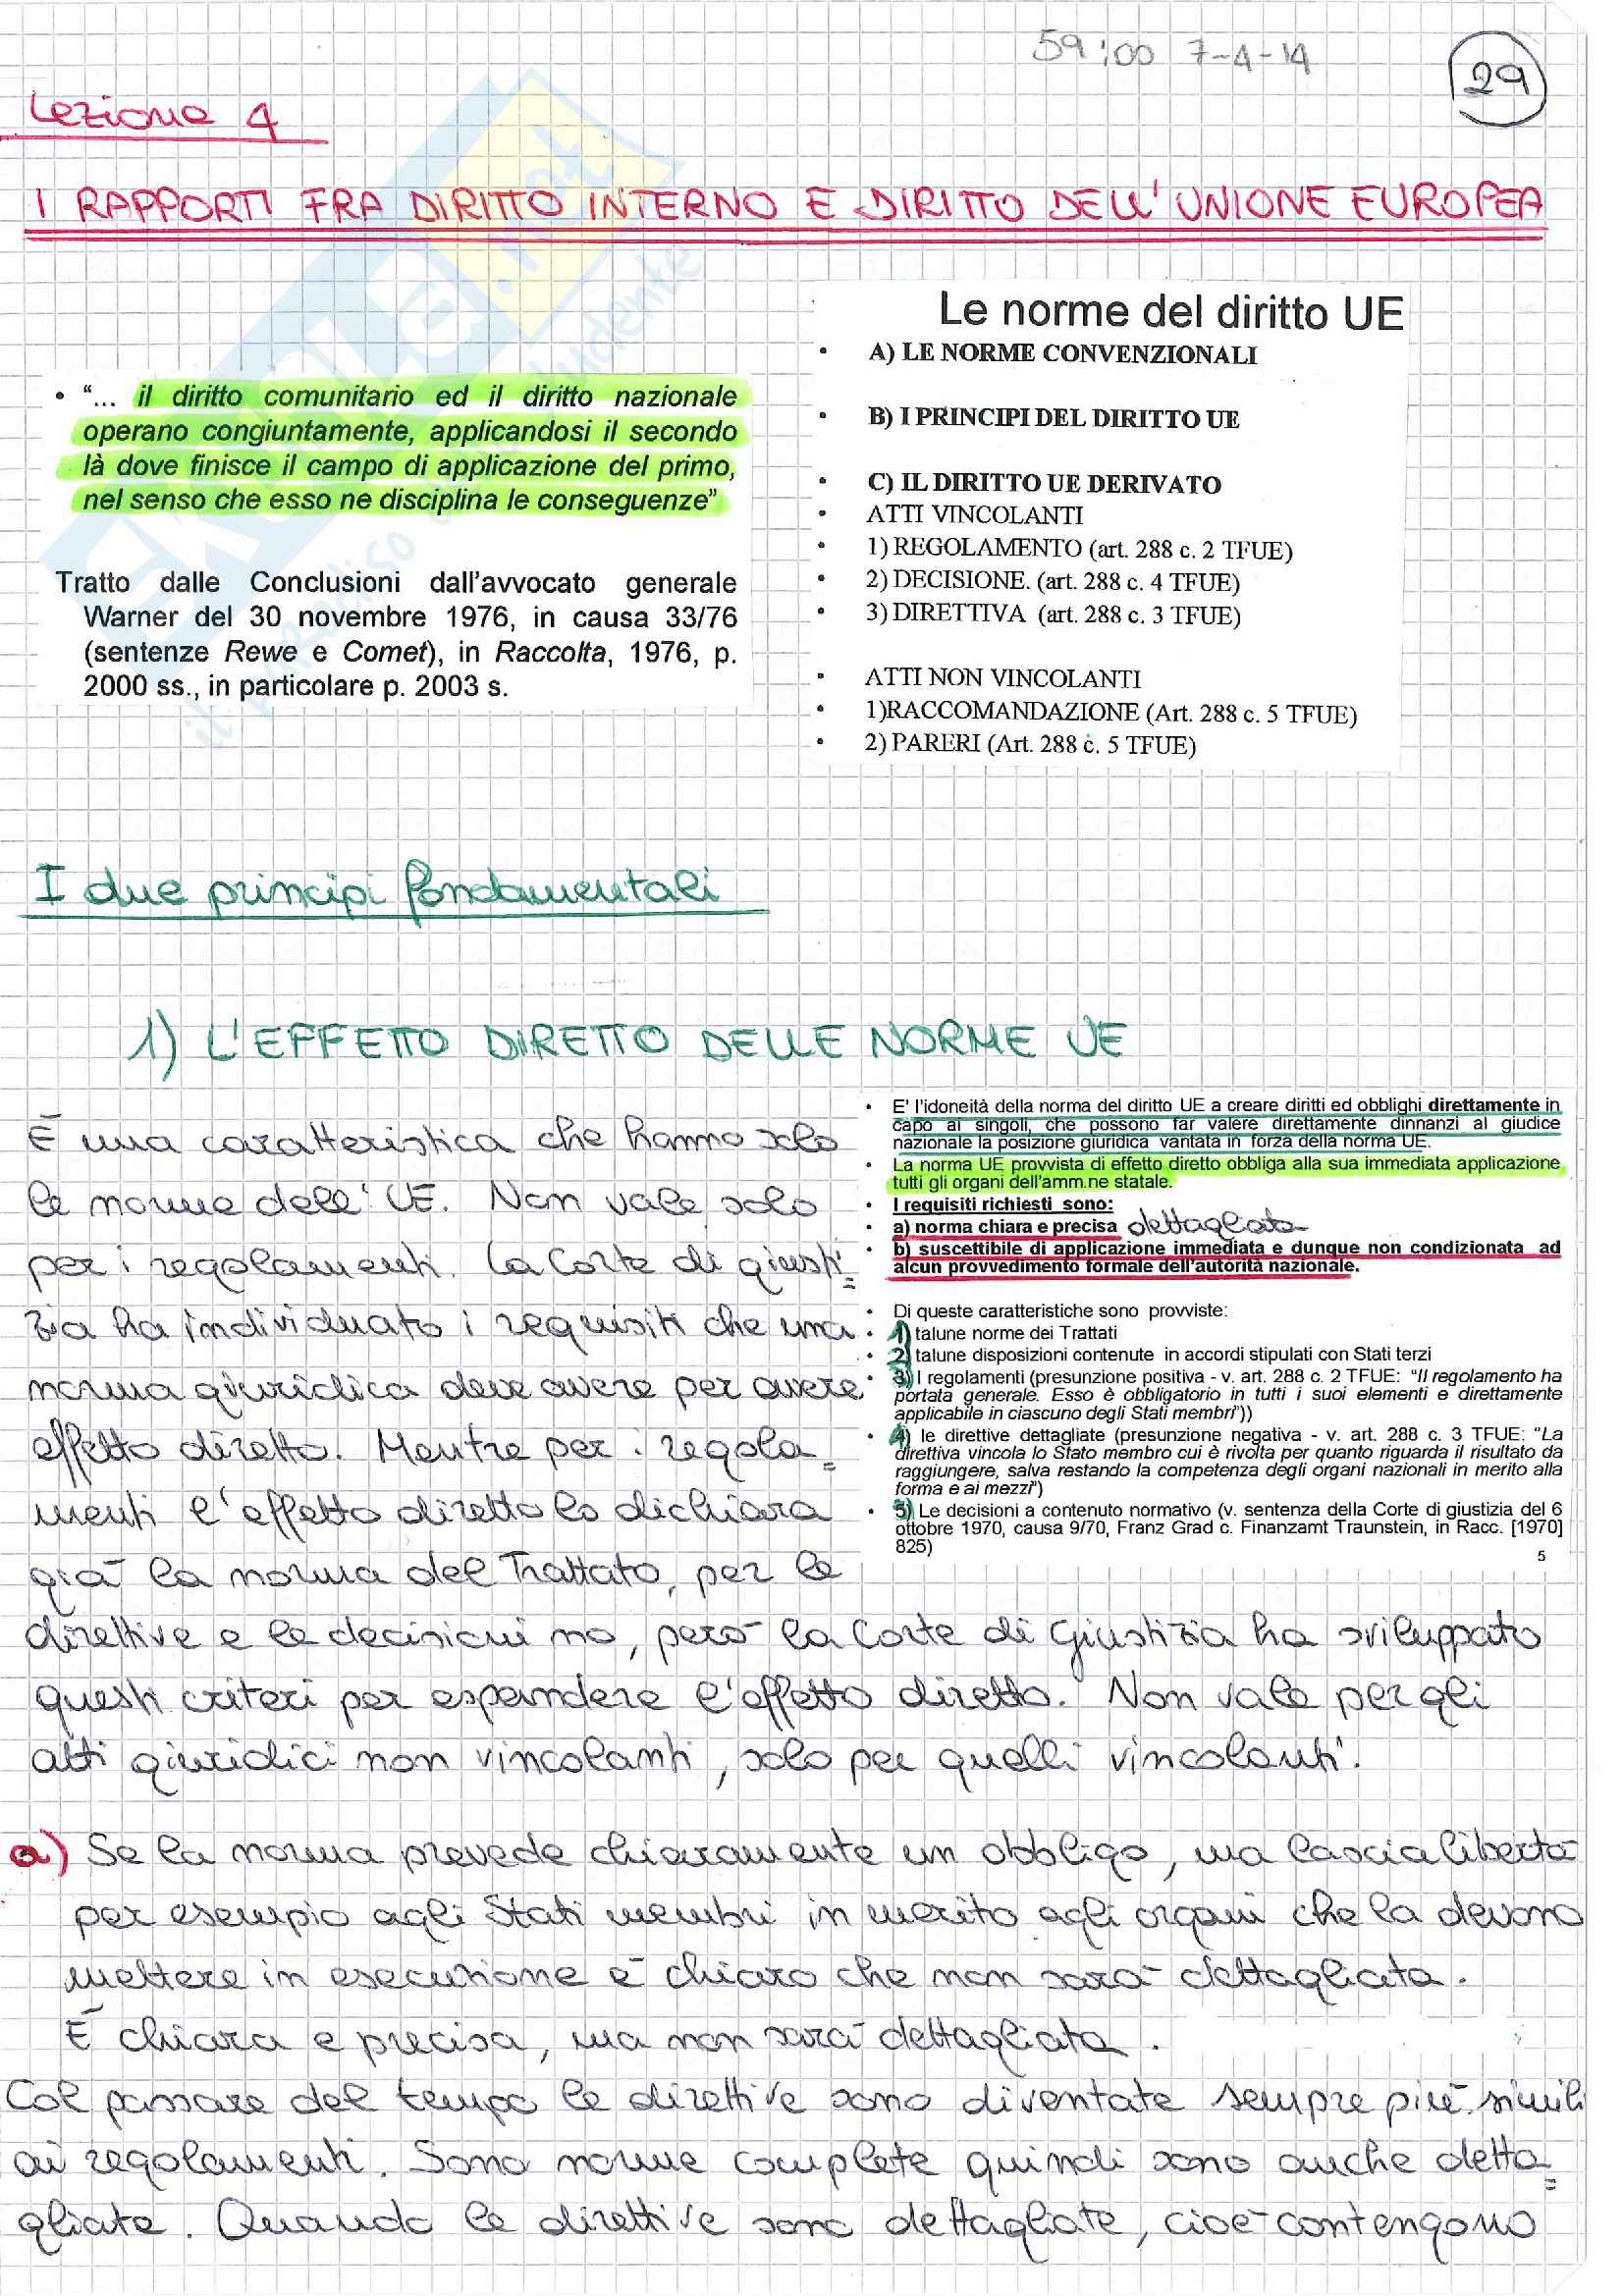 59:00 7-4-14
29
Lezione 4
I RAPPORTI FRA DIRITTO INTERNO E DIRITTO DELL'UNIONE EUROPEA
• "... il diritto comunitario ed il diritto nazionale
operano congiuntamente, applicandosi il secondo
là dove finisce il campo di applicazione del primo,
nel senso che esso ne disciplina le conseguenze"
Tratto dalle Conclusioni dall'avvocato generale
Warner del 30 novembre 1976, in causa 33/76
(sentenze Rewe e Comet), in Raccolta, 1976, p.
2000 ss., in particolare p. 2003 s.
Le norme del diritto UE
• A) LE NORME CONVENZIONALI
• B) I PRINCIPI DEL DIRITTO UE
• C) IL DIRITTO UE DERIVATO
• ATTI VINCOLANTI
• 1) REGOLAMENTO (art. 288 c. 2 TFUE)
• 2) DECISIONE. (art. 288 c. 4 TFUE)
• 3) DIRETTIVA (art. 288 c. 3 TFUE)
• ATTI NON VINCOLANTI
• 1)RACCOMANDAZIONE (Art. 288 c. 5 TFUE)
• 2) PARERI (Art. 288 c. 5 TFUE)
I due principi fondamentali
1) L'EFFETTO DIRETTO DELLE NORME UE
È una caratteristica che hanno solo
le norme dell'UE. Non vale solo
per i regolamenti. La Corte di giusti=
zia ha individuato i requisiti che una
norma giuridica deve avere per avere
effetto diretto. Mentre per i regola=
menti l'effetto diretto lo dichiara
già la norma del Trattato, per le
• E' l'idoneità della norma del diritto UE a creare diritti ed obblighi direttamente in
capo ai singoli, che possono far valere direttamente dinnanzi al giudice
nazionale la posizione giuridica vantata in forza della norma UE.
• La norma UE provvista di effetto diretto obbliga alla sua immediata applicazione
tutti gli organi dell'amm.ne statale.
• I requisiti richiesti sono:
• a) norma chiara e precisa dettagliata
• b) suscettibile di applicazione immediata e dunque non condizionata ad
alcun provvedimento formale dell'autorità nazionale.
• Di queste caratteristiche sono provviste:
• 1) talune norme dei Trattati
• 2) talune disposizioni contenute in accordi stipulati con Stati terzi
• 3) I regolamenti (presunzione positiva - v. art. 288 c. 2 TFUE: "Il regolamento ha
portata generale. Esso è obbligatorio in tutti i suoi elementi e direttamente
applicabile in ciascuno degli Stati membri"))
• 4) le direttive dettagliate (presunzione negativa - v. art. 288 c. 3 TFUE: "La
direttiva vincola lo Stato membro cui è rivolta per quanto riguarda il risultato da
raggiungere, salva restando la competenza degli organi nazionali in merito alla
forma e ai mezzi")
• 5) Le decisioni a contenuto normativo (v. sentenza della Corte di giustizia del 6
ottobre 1970, causa 9/70, Franz Grad c. Finanzamt Traunstein, in Racc. [1970]
825)
5
direttive e le decisioni no, però la Corte di Giustizia ha sviluppato
questi criteri per espandere l'effetto diretto. Non vale per gli
atti giuridici non vincolanti, solo per quelli vincolanti.
a) Se la norma prevede chiaramente un obbligo, ma lascia libertà
per esempio agli Stati membri in merito agli organi che la devono
mettere in esecuzione è chiaro che non sarà dettagliata.
È chiara e precisa, ma non sarà dettagliata.
Col passare del tempo le direttive sono diventate sempre più simili
ai regolamenti. Sono norme complete quindi sono anche detta=
gliate. Quando le direttive sono dettagliate, cioè contengono